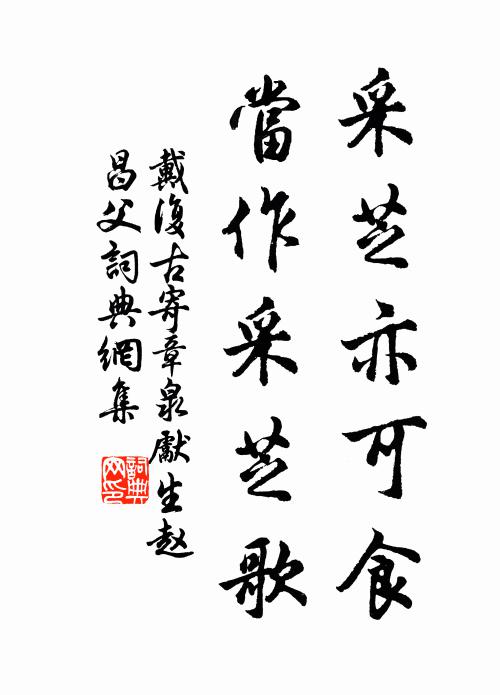 采芝亦可食
當作采芝歌
戴復古寄章泉獻生赵
昌父詞典網集
詞典网印